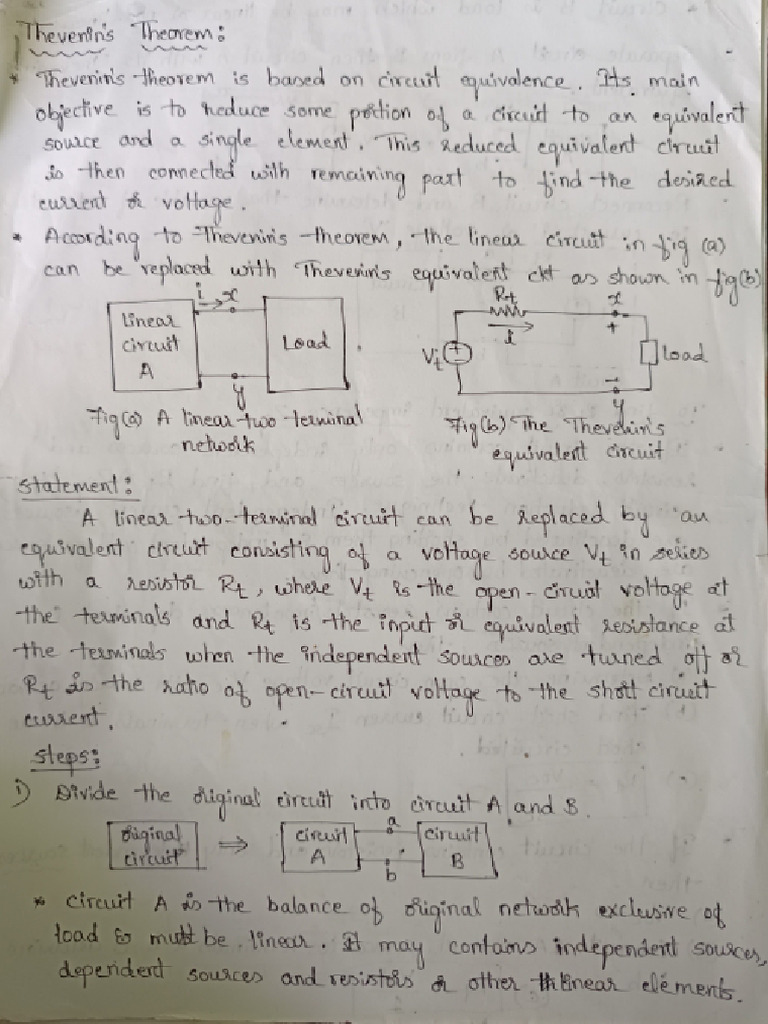 Thevenin's Theorem:
* Thevenin's theorem is based on circuit equivalence. Its main
objective is to reduce some portion of a circuit to an equivalent
source and a single element. This reduced equivalent circuit
is then connected with remaining part to find the desired
current or voltage.
* According to Thevenin's theorem, the linear circuit in fig (a)
can be replaced with Thevenin's equivalent ckt as shown in fig(b)
i x
Linear
circuit
A
Load
y
Rt x
i +
Vt
Load
-
y
Fig(a) A linear two terminal
network
Fig(b) The Thevenin's
equivalent circuit
Statement:
A linear two-terminal circuit can be replaced by an
equivalent circuit consisting of a voltage source Vt in series
with a resistor Rt, where Vt is the open-circuit voltage at
the terminals and Rt is the input or equivalent resistance at
the terminals when the independent sources are turned off or
Rt is the ratio of open-circuit voltage to the short circuit
current.
Steps:
i) Divide the original circuit into circuit A and B.
original
circuit
⇒
circuit
A
a
b
circuit
B
* Circuit A is the balance of original network exclusive of
load & must be linear. It may contains independent sources,
dependent sources and resistors or other linear elements.